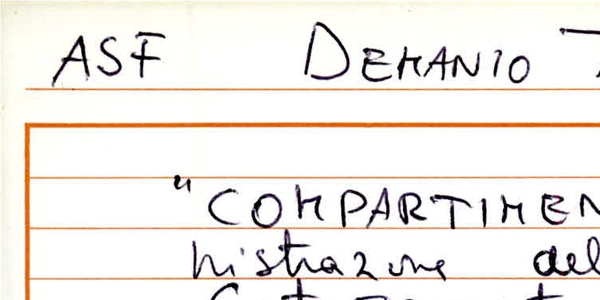 ASF DEMANIO
"COMPARTIMEN
nistrazione del